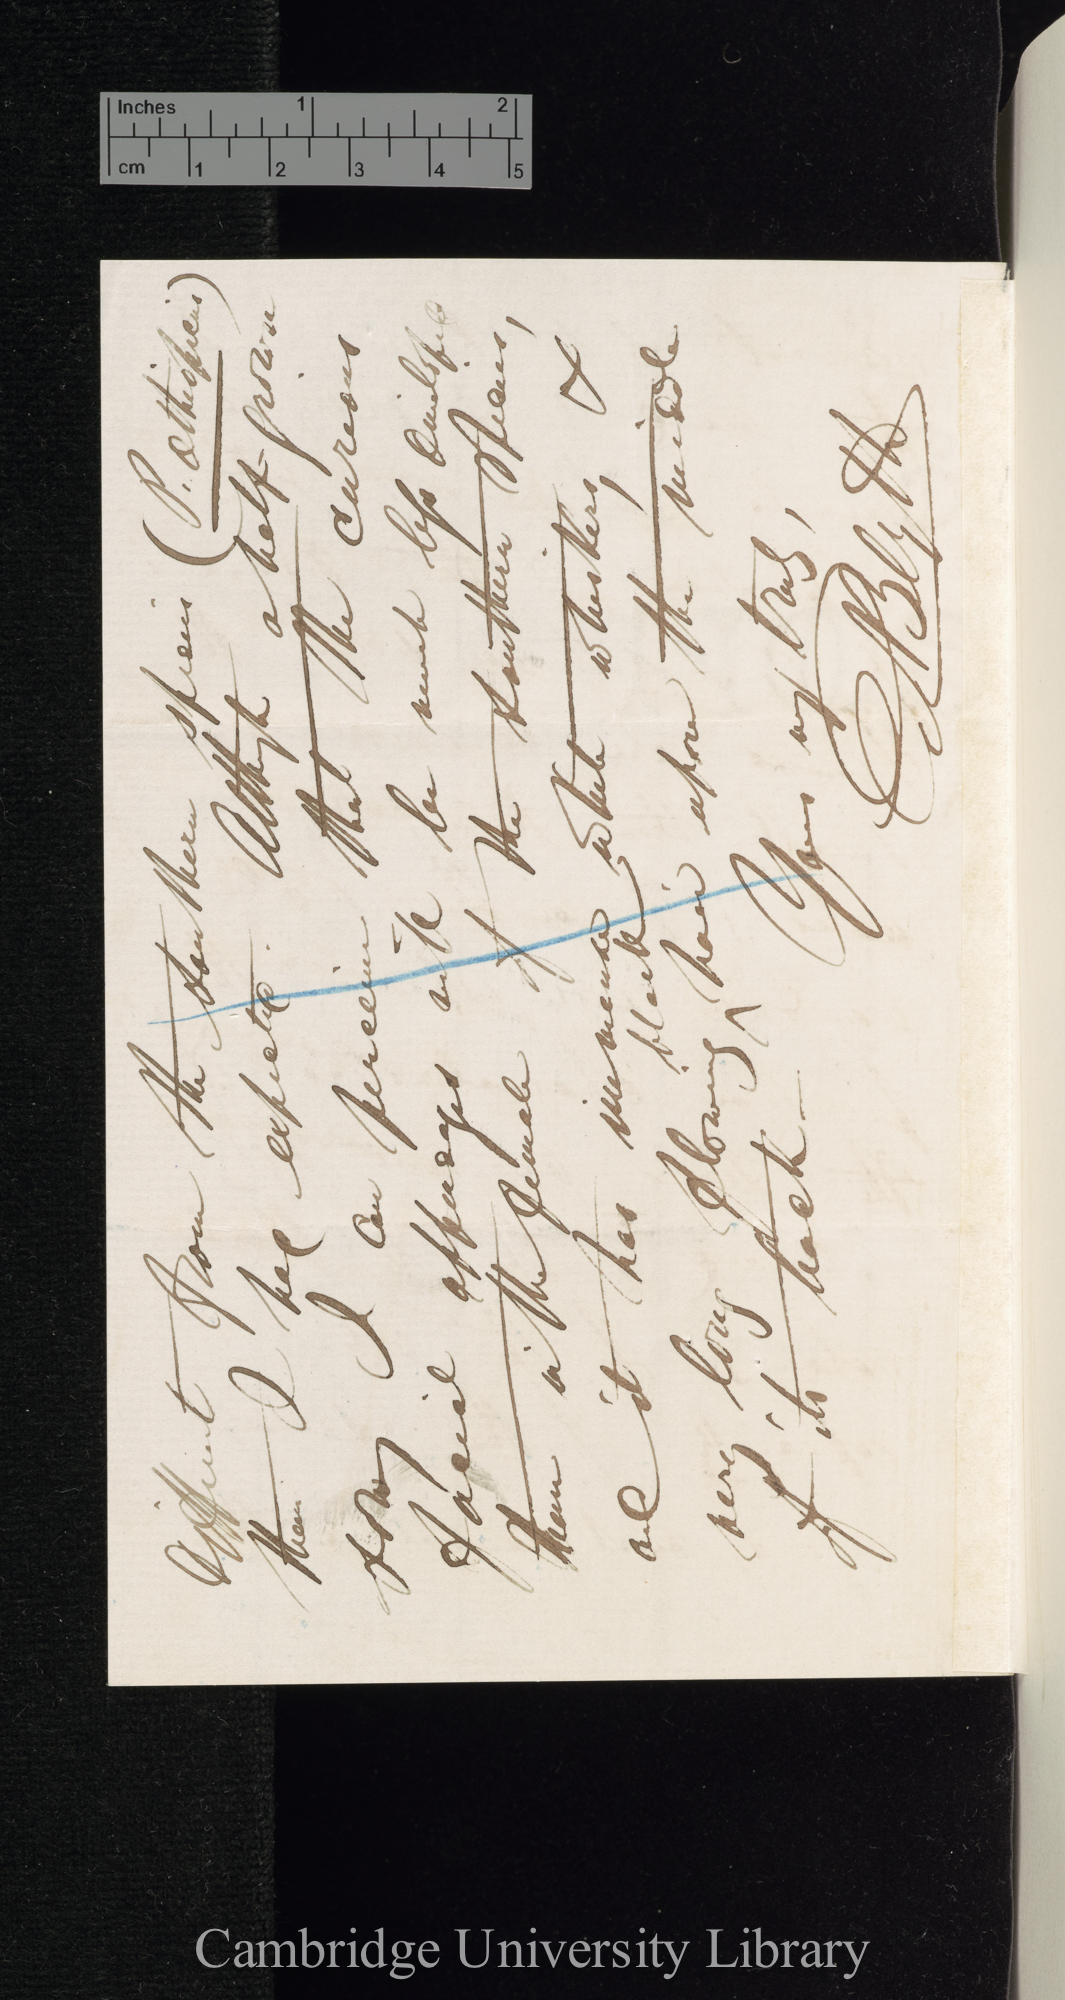 Inches 1 2
cm 1 2 3 4 5
different from the southern species (P. æthiopicus)
than I had expected. Although a half-grown
sow, I can perceive that the curious
facial appendages will be much less developed
than in the female of the southern species,
and it has immense white whiskers, &
very long flowing ^ black hair upon the middle
of its back—
Yours very truly,
E Blyth
Cambridge University Library